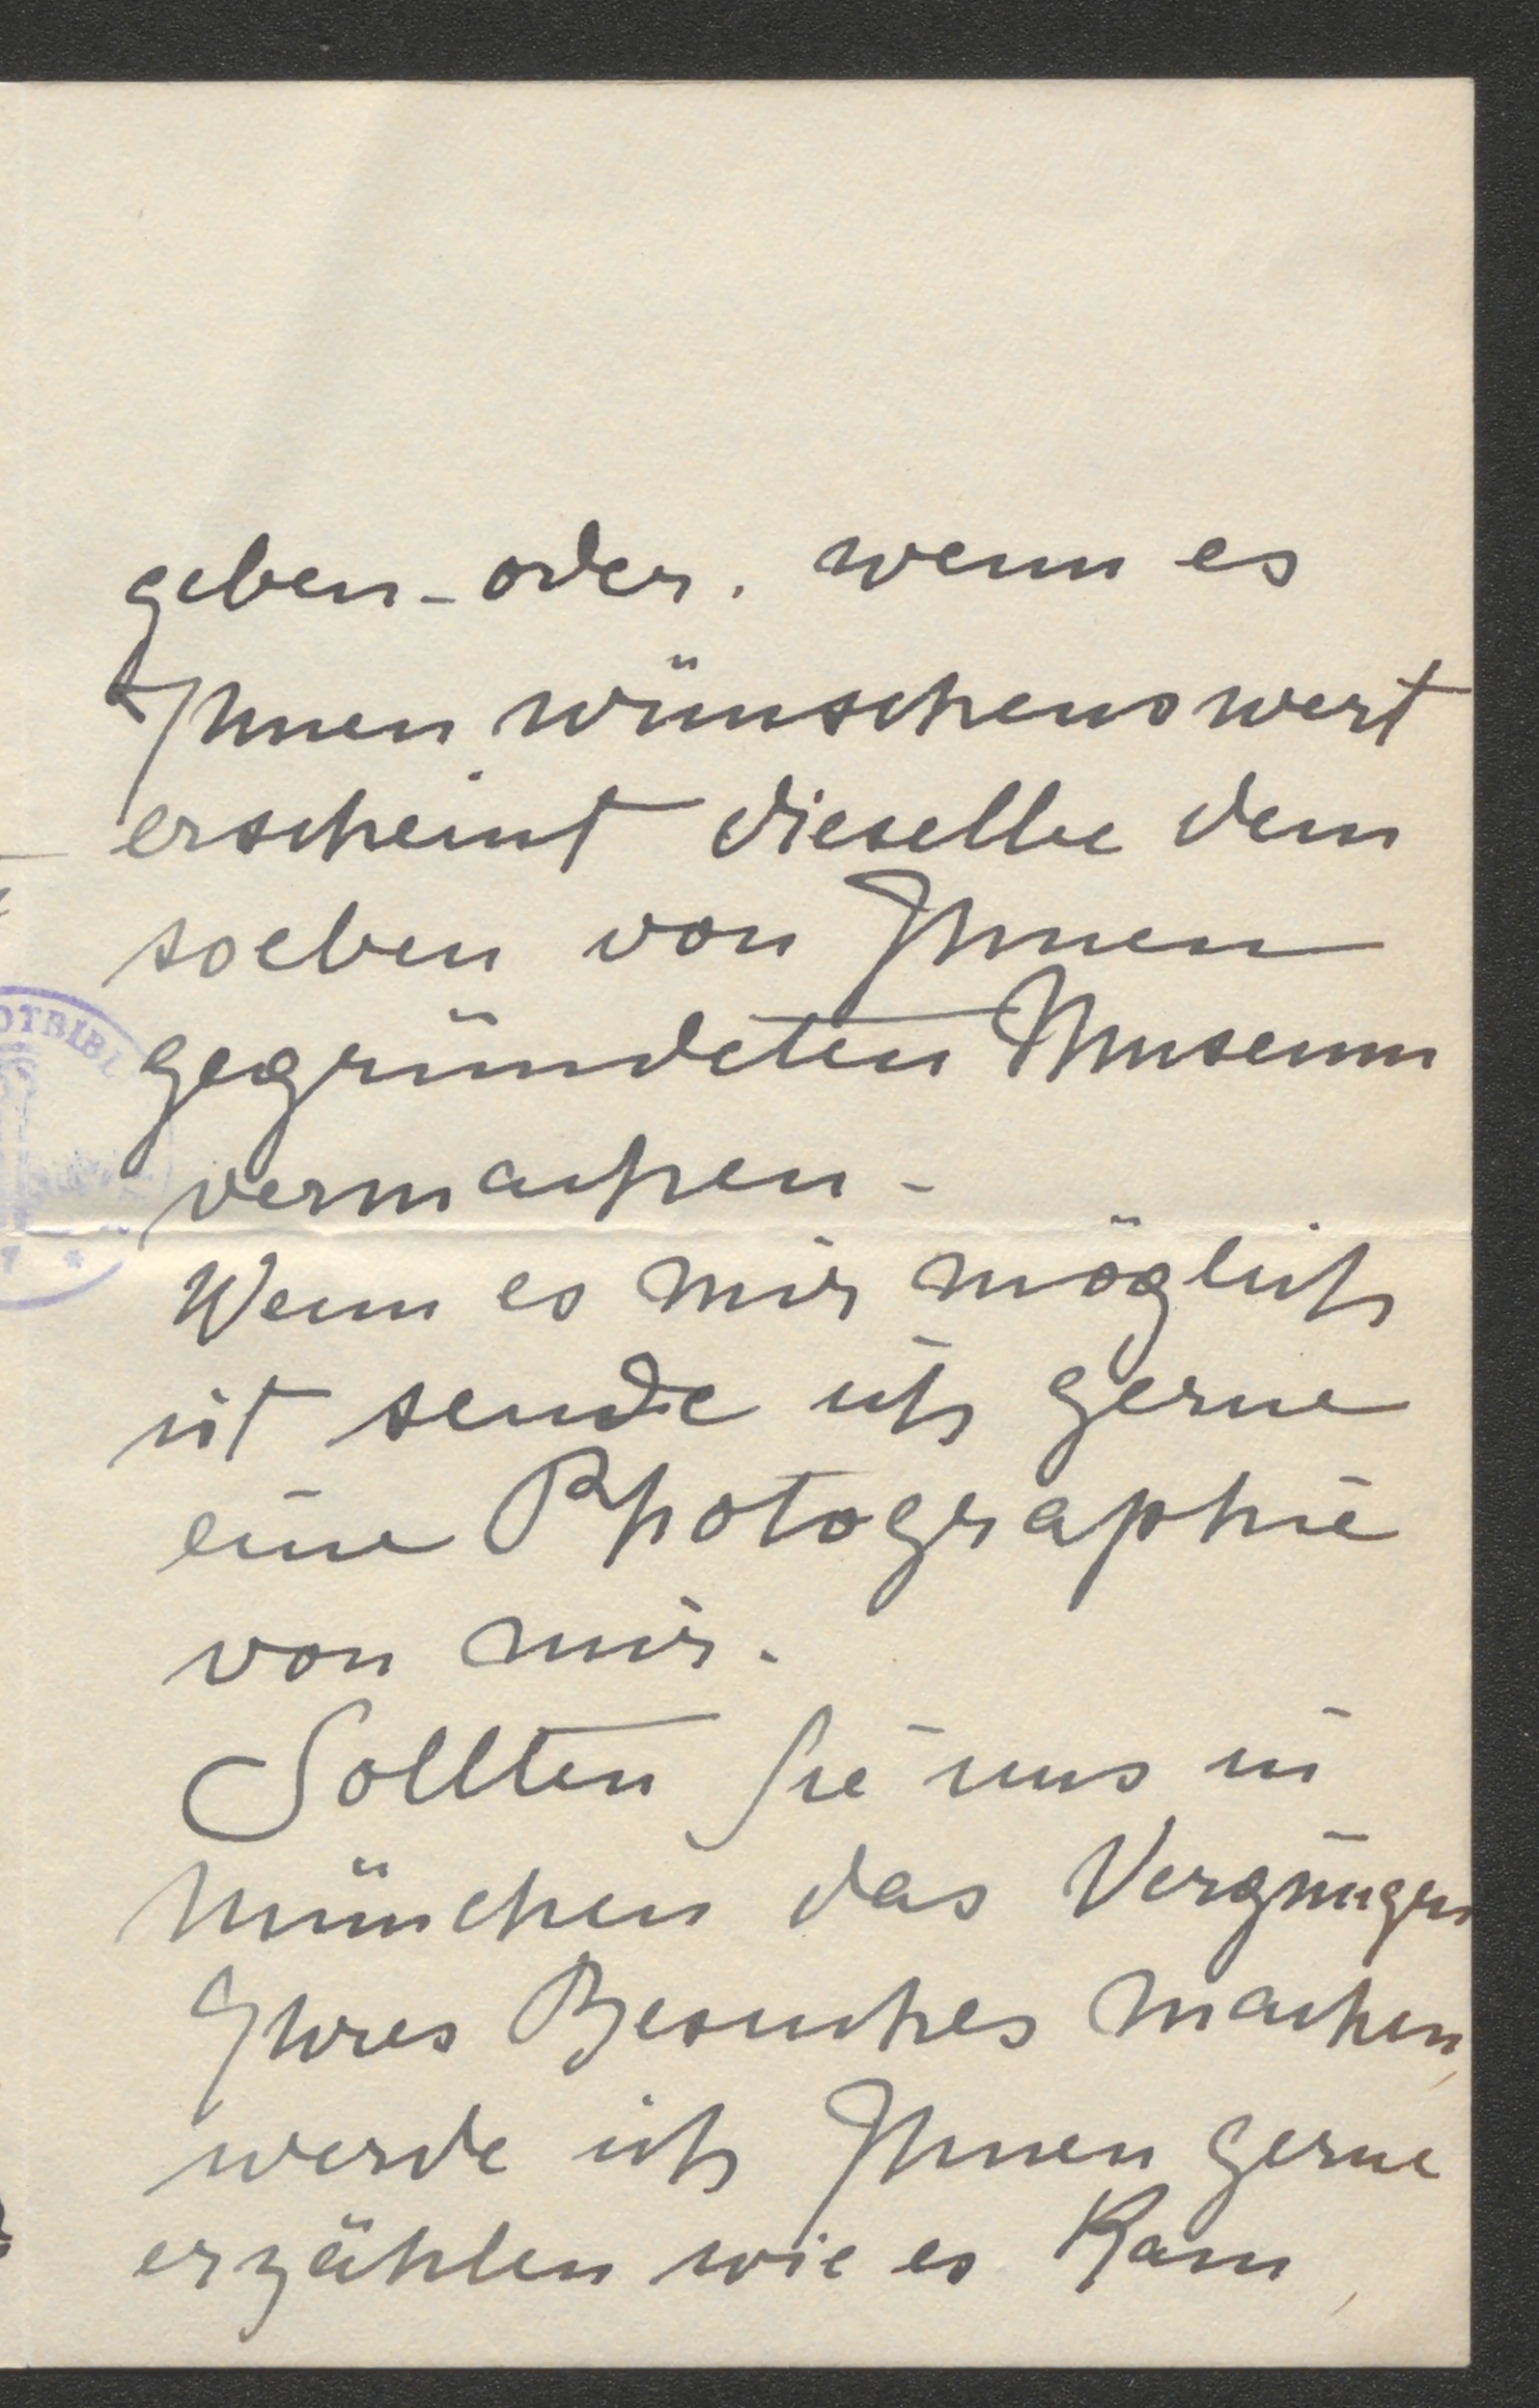 geben - oder. wenn es
Ihnen wünschenswert
erscheint dieselbe dem
soeben von Ihnen
gegründeten Museum
vermachen -
Wenn es mir möglich
ist sende ich gerne
eine Photographie
von mir.
Sollten Sie uns in
München das Vergnügen
Ihres Besuches machen,
werde ich Ihnen gerne
erzählen wie es kam,